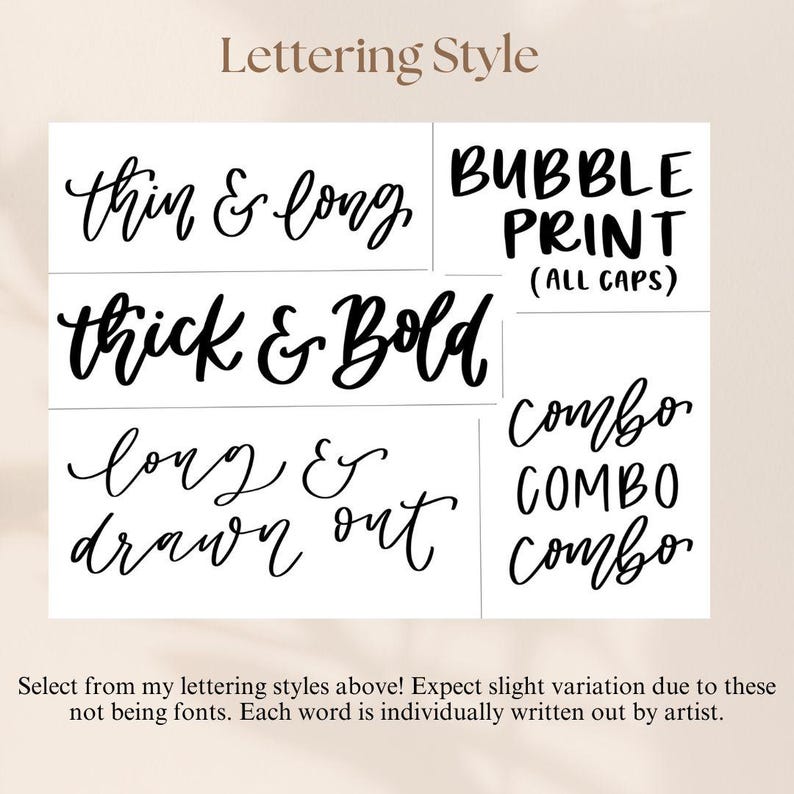 Lettering Style
thin & long
BUBBLE
PRINT
(ALL CAPS)
thick & Bold
long &
drawn out
combo
COMBO
combo
Select from my lettering styles above! Expect slight variation due to these
not being fonts. Each word is individually written out by artist.